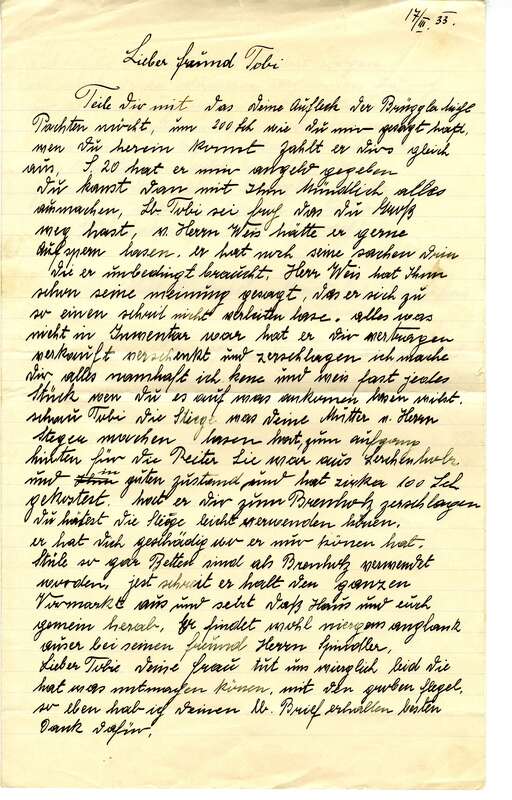 17/III. 33.
Lieber freund Tobi
Teile dir mit das deine Aufleck der Brüggler licht
Pachten möcht, um 200 Sch wie du mir gesagt hast,
wen du herein komst zahlt er dirs gleich
aus, S. 20 hat er mir angeld gegeben
Du kanst dan mit Ihm Mündlich alles
ausmachen, Lb Tobi sei froh das du Groß
weg hast, v. Herrn Weis hätte er gerne
Aufspern lasen. er hat noch seine sachen drin
die er unbedingt braucht. Herr Weis hat Ihm
schon seine meinung gesagt, das er sich zu
so einen schrit nicht verleiten lase. alles was
nicht in Inwentar war hat er dir vertragen
verkauft verschenkt und zerschlagen ich mache
dir alles namhaft ich kene und weis fast jedes
Stück wen du es auf was ankomen lasen wilst.
schau Tobi die Stiege was deine Mutter v. Herrn
Steger machen lasen hat, zum aufgang
hinten für die Reiter Sie war aus Lerchenholz
und in guten zustand, und hat zirka 100 Sch
gekostet. hat er dir zum Brenholz zerschlagen
Du hätest die Stiege leicht verwenden könen.
er hat dich geschädig wo er nur könen hat.
Stüle so gar Betten sind als Brenholz verwendet
worden, jest schreit er halt den ganzen
Virmarkt aus und setzt daß Haus und euch
gemein herab. Er findet wohl niergens anglank
auser bei seinen freund Herrn Spindler,
Lieber Tobie deine frau tut uns wirglich leid die
hat was mitmachen könen, mit den groben flegel.
so eben hab ich deinen lb. Brief erhalten besten
Dank dafür,